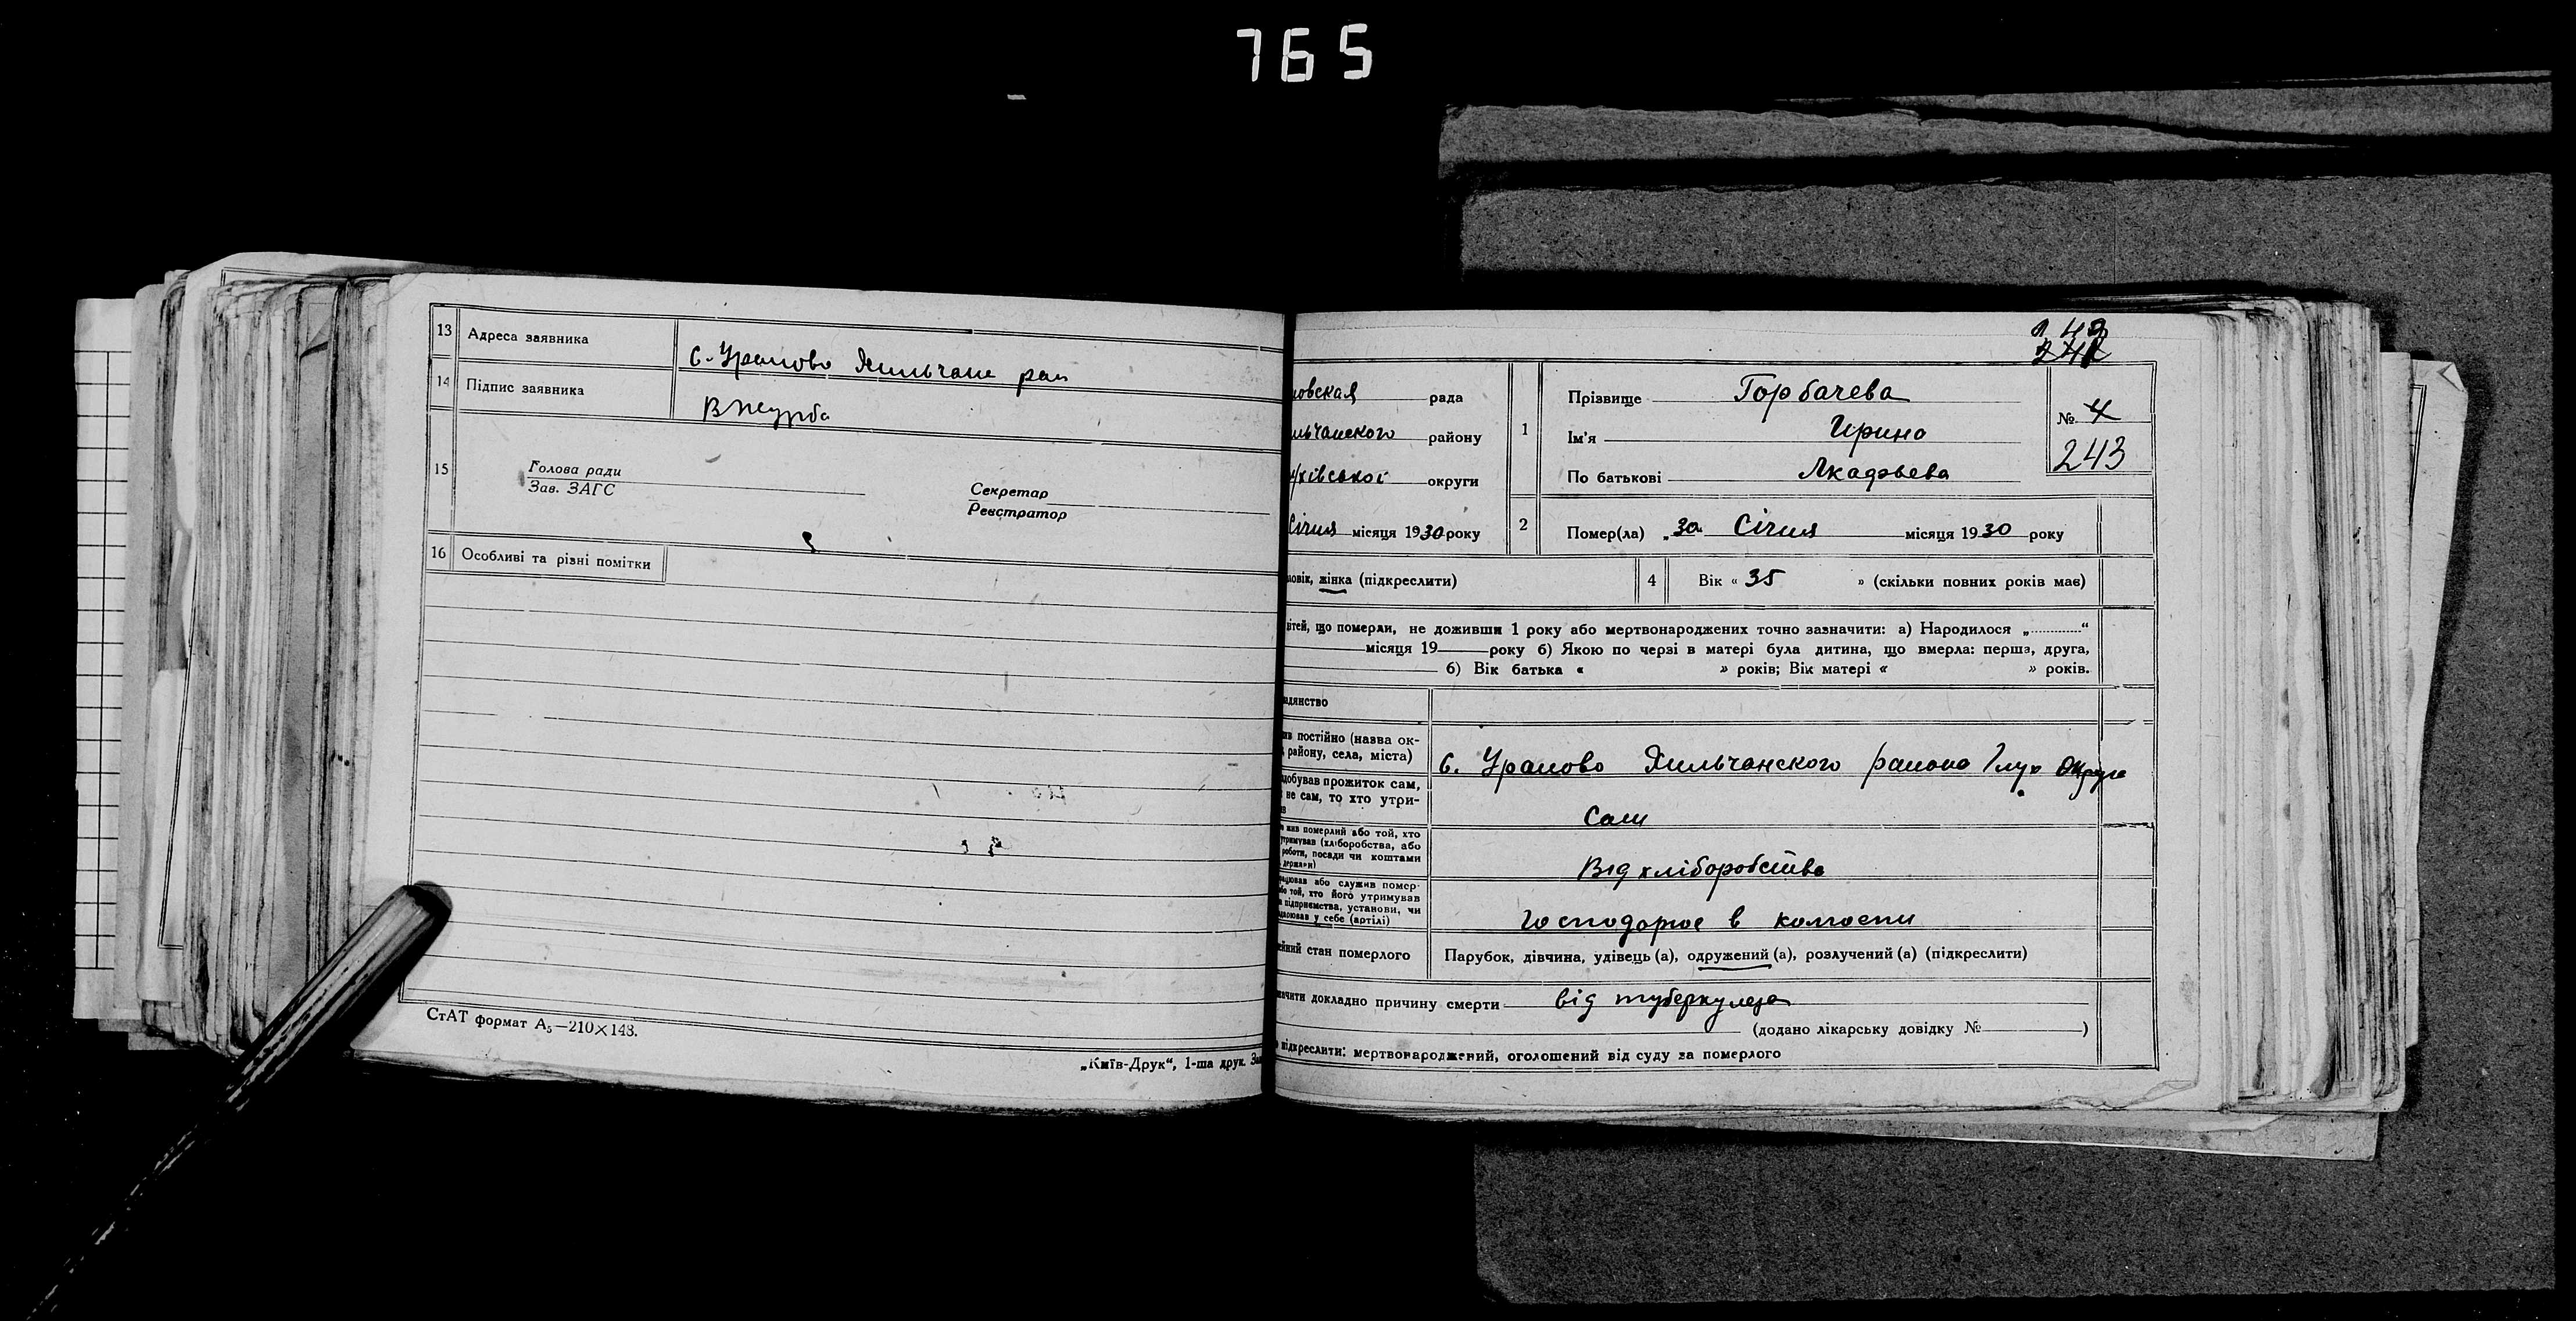 765
13 Адреса заявника с. Уралово Хильчанс рай
14 Підпис заявника В Журба
15
Голова ради
Зав. ЗАГС
Секретар
Реєстратор
16 Особливі та різні помітки
СтАТ формат А₅—210×148.
„Київ-Друк“, 1-ша друк.
243
рада
району
округи
Січня місяця 1930 року
1
Прізвище Горбачева
Ім'я Ирина
По батькові Акадьева
№ 4
243
2 Помер(ла) „30 Січня місяця 1930 року
жінка (підкреслити)
4 Вік « 35 » (скільки повних років має)
що померли, не доживши 1 року або мертвонароджених точно зазначити: а) Народилося „ “
місяця 19 року б) Якою по черзі в матері була дитина, що вмерла: перша, друга,
б) Вік батька « » років; Вік матері « » років.
постійно (назва ок-
району, села, міста) с. Уралово Хильчанского района Глух округа
прожиток сам,
не сам, то хто утри-
Сам
жив померлий або той, хто
утримував (хліборобства, або
роботи, посади чи коштами
держави)
Від хліборобства
або служив помер-
той, хто його утримував
підприємства, установи, чи
у себе (артілі)
Господарює в
стан померлого Парубок, дівчина, удівець (а), одружений (а), розлучений (а) (підкреслити)
докладно причину смерти від туберкулеза
(додано лікарську довідку № )
підкреслити: мертвонароджений, оголошений від суду за померлого